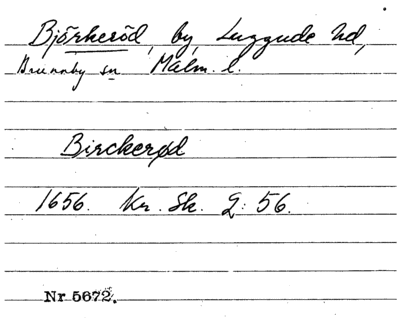 Björkeröd, by, Luggude hd,
Brunnby sn Malm. l.
Birckerød
1656. Kr. Sk. Q: 56.
Nr 5672.